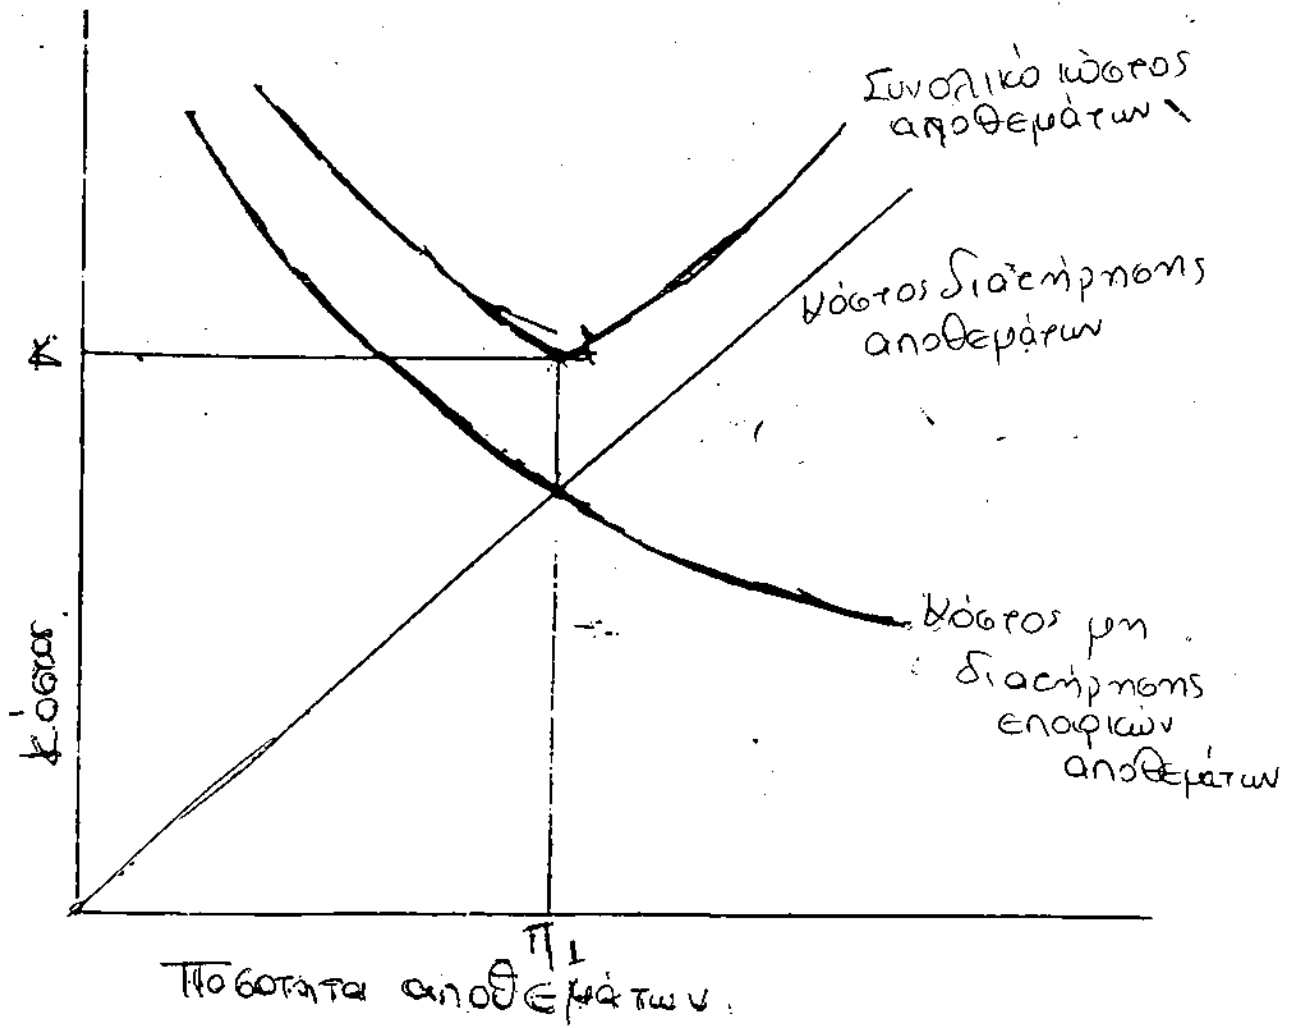 Συνολικό κόστος
αποθεμάτων
Κόστος διατήρησης
αποθεμάτων
Κ
Κόστος μη
διατήρησης
επαρκών
αποθεμάτων
Κόστος
Π1
Ποσότητα αποθεμάτων.